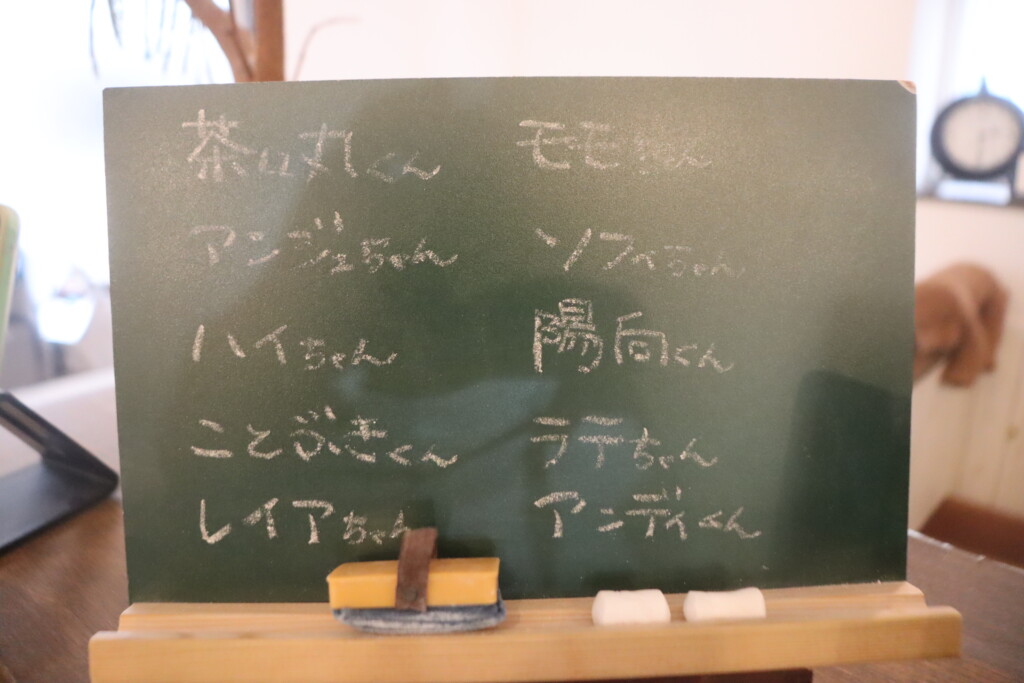 茶々丸くん
アンジュちゃん
ハイちゃん
ことぶきくん
レイアちゃん
モモちゃん
ソフィちゃん
陽向くん
ラテちゃん
アンディくん